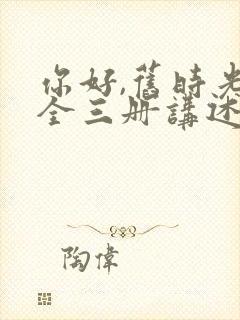 你好,舊時光
全三册講述
陶偉